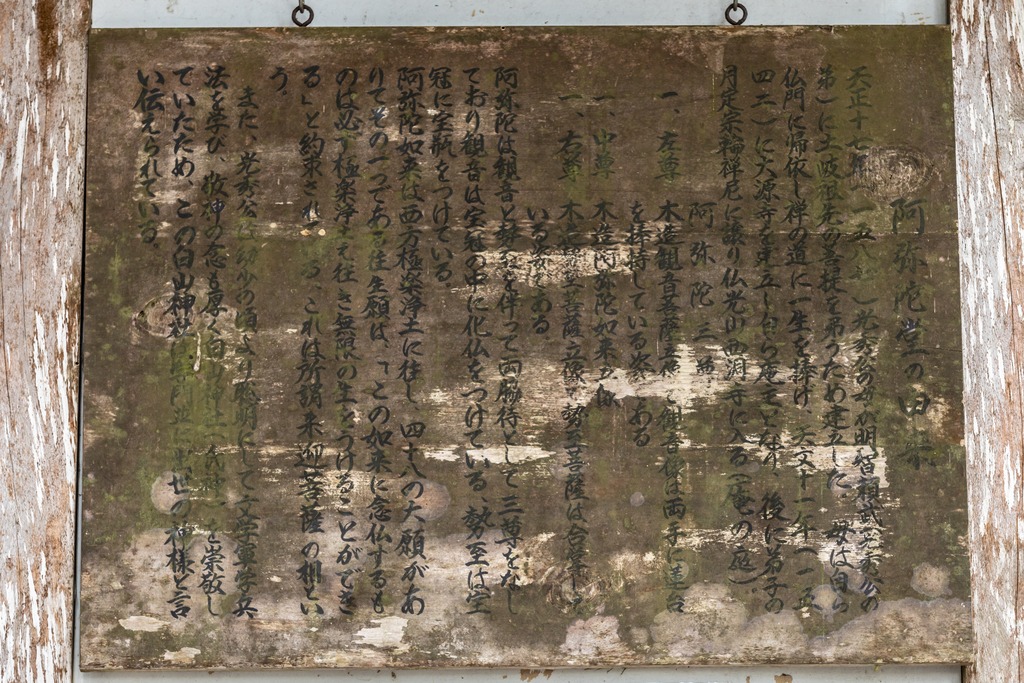 阿弥陀堂の由来
天正十七年（一五八九）光秀公の母が明智相式光秀公の
第）に土岐頼光の菩提を弔うため建立した。母は自ら
仏門に帰依し禅の道に一生を捧げ、天文十一年（一五
四二）に大源寺を建立し自ら庵主となり、後に弟子の
月走宗輪禅尼に譲り仏光山西洞寺に入る（庵の庭）。
阿弥陀三尊
一、左尊 木造観音菩薩立像 観音像は両手に蓮台
を捧持している姿である
一、中尊 木造阿弥陀如来立像
一、右尊 木造勢至菩薩立像 勢至菩薩は合掌して
いる姿である。
阿弥陀は観音と勢至を伴って両脇待として三尊をなし
ており観音は宝冠の中に化仏をつけている、勢至は宝
冠に宝瓶をつけている。
阿弥陀如来は西方極楽浄土に往し、四十八の大願があ
りてその一つである往生願は、「この如来に念仏するも
のは必ず極楽浄土え往き無限の生をうけることができ
る」と約束され る、これは所謂来迎菩薩の相とい
う。
また、光秀公は幼少の頃より聡明にして文学軍学兵
法を学び、敬神の念も厚く白山神社 を崇敬し
ていたため、この白山神社 世の神様と言
い伝えられている。